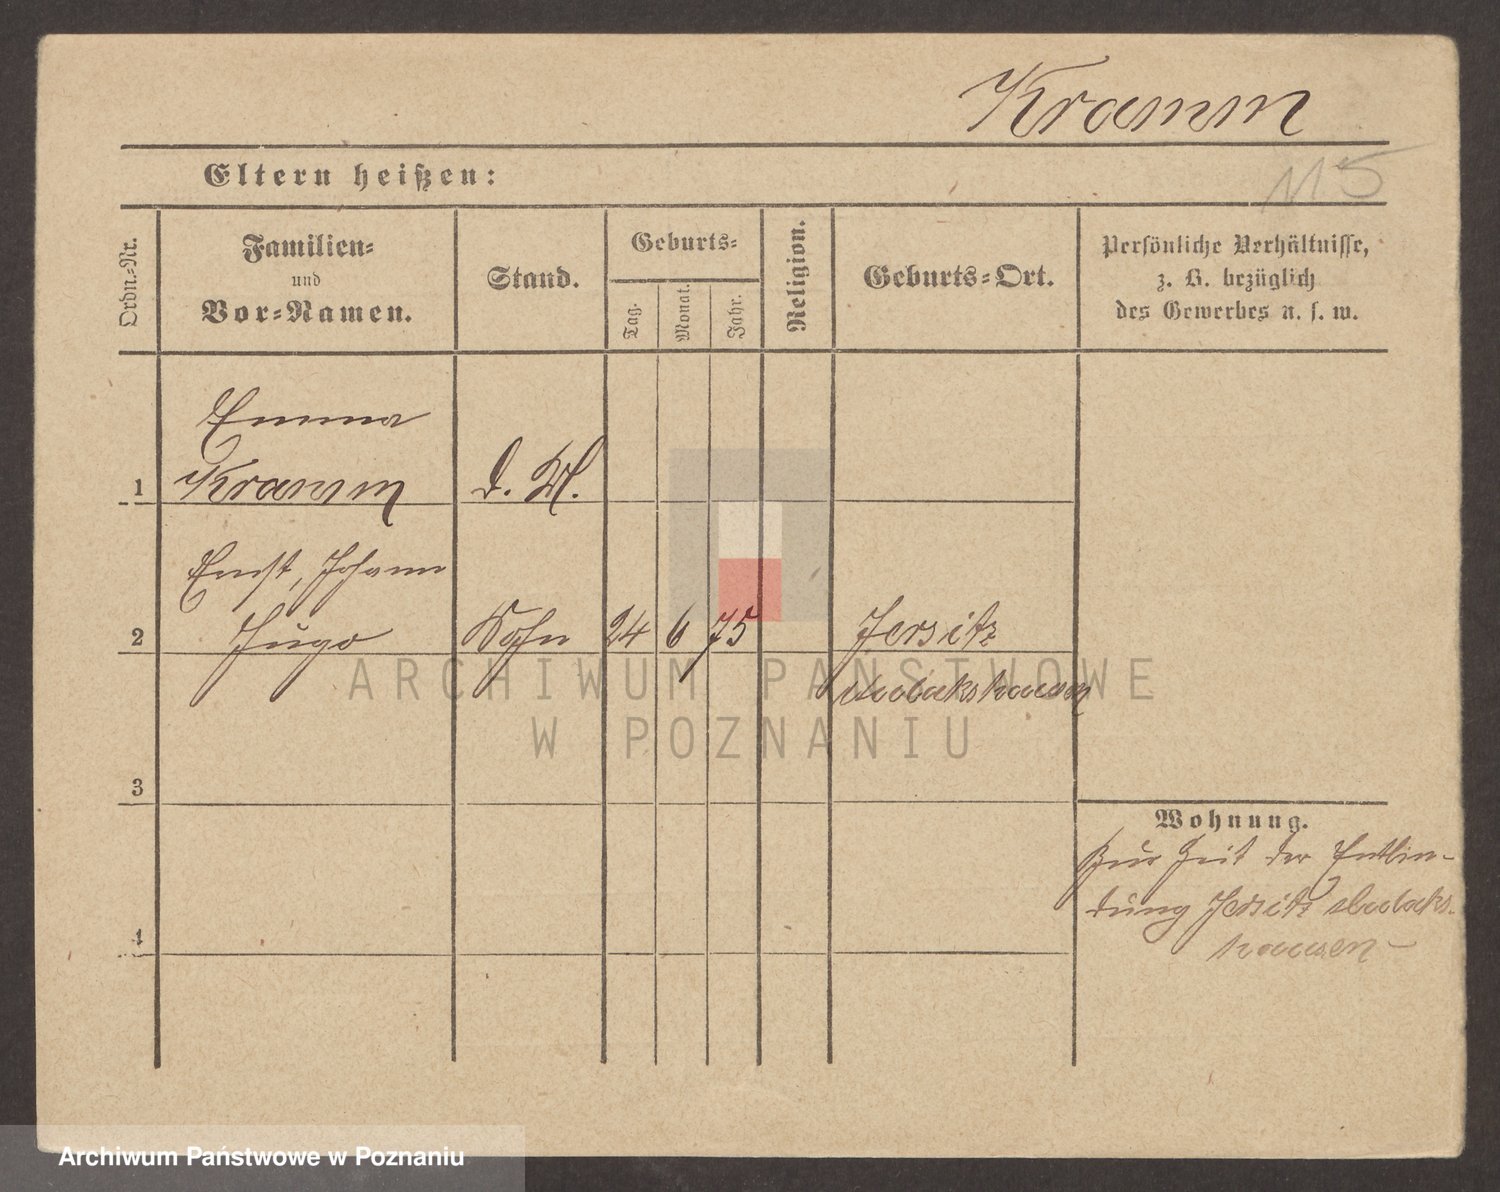 Kramm
115
Eltern heißen:
Ordn.-Nr.
Familien-
und
Vor-Namen.
Stand.
Geburts-
Tag.
Monat.
Jahr.
Religion.
Geburts-Ort.
Persönliche Verhältnisse,
z. B. bezüglich
des Gewerbes u. s. w.
Emma
1 Kramm d. M.
Ernst, Johann
2 Hugo Sohn 24 6 75 Jersitz
3
Wohnung.
Zur Zeit der Entbin-
dung Jersitz
4
ARCHIWUM PAŃSTWOWE
W POZNANIU
Archiwum Państwowe w Poznaniu